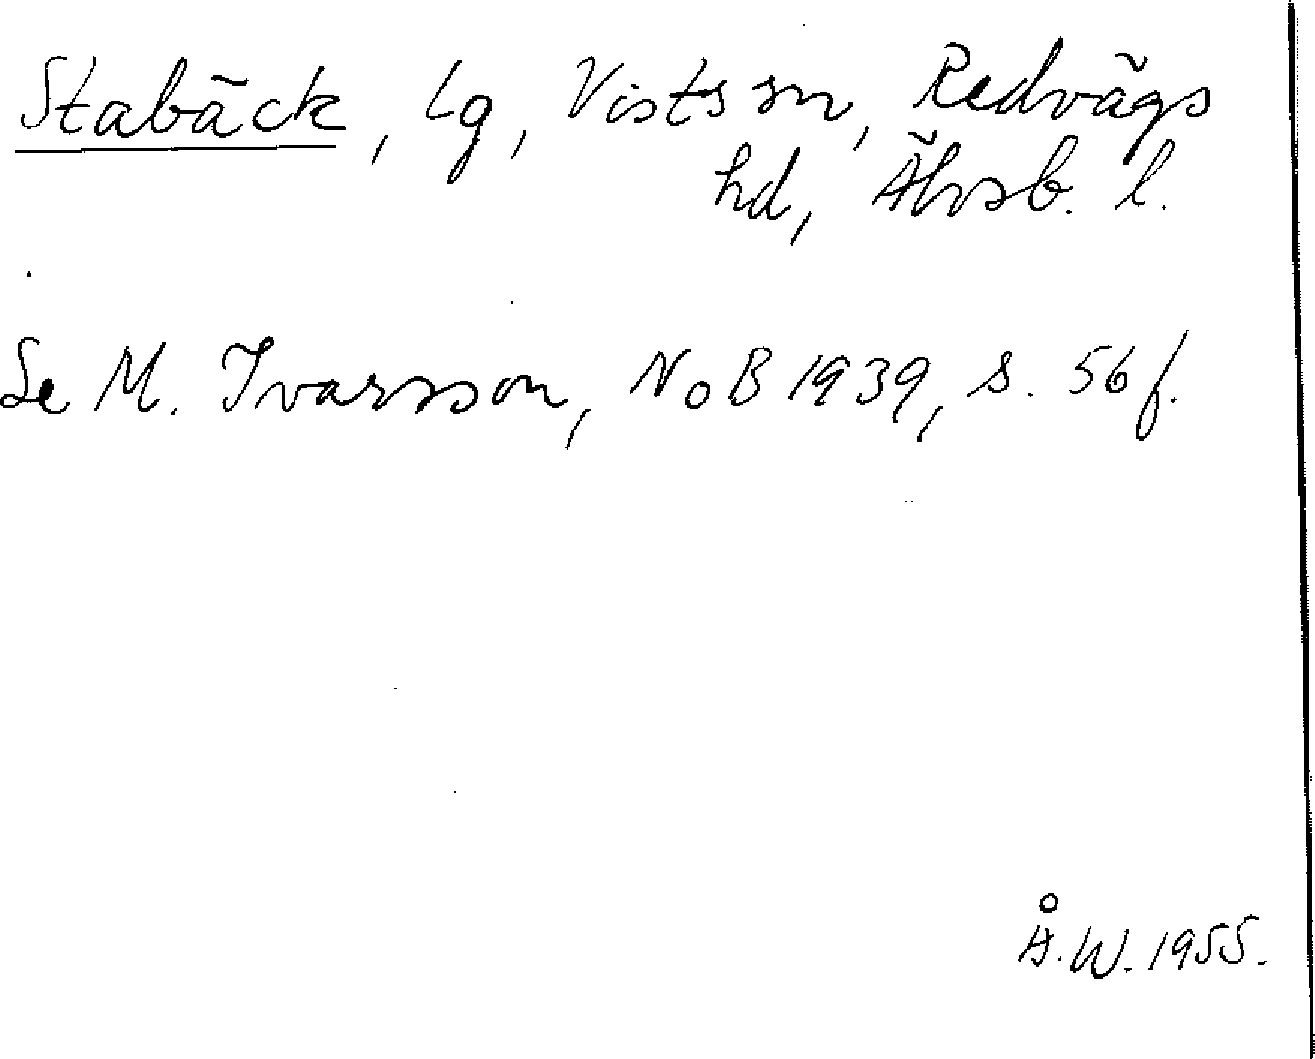 Stabäck, lg, Vists sn, Redvägs
hd, Älvsb. l.
Se M. Ivarsson, NoB 1939, s. 56 f.
Å.W. 1955.